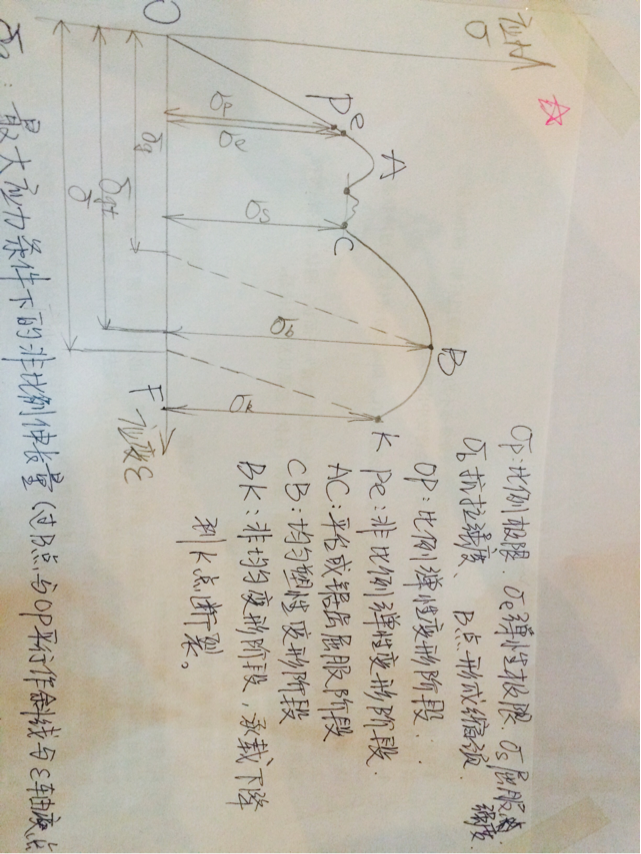 应力
σ
☆
O
P
e
A
C
B
K
F
应变ε
σp
σe
σs
σb
σk
δg
δgt
δ
σp:比例极限. σe弹性极限. σs屈服强度.
σb抗拉强度、B点形成缩颈.
OP:比例弹性变形阶段.
Pe:非比例弹性变形阶段.
AC:平台或锯齿屈服阶段
CB:均匀塑性变形阶段
BK:非均匀变形阶段,承载下降
到K点断裂。
最大应力条件下的非比例伸长量(过B点与OP平行作斜线与ε轴交点